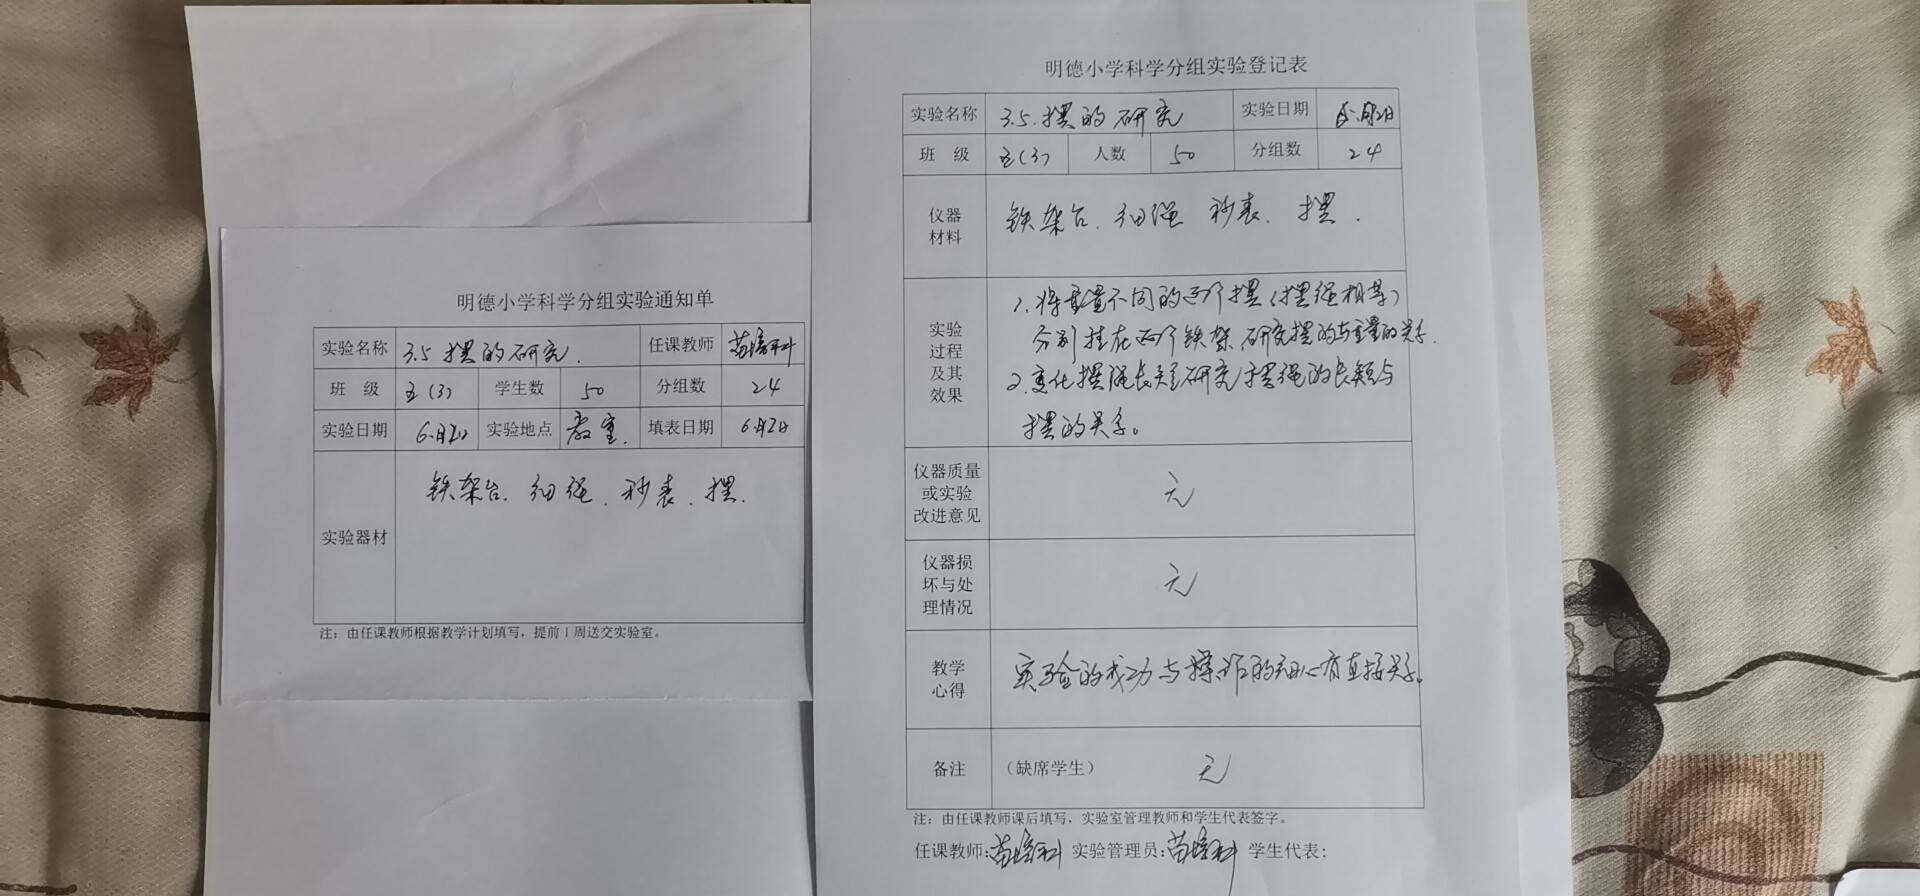 明德小学科学分组实验通知单
实验名称 3.5 摆的研究. 任课教师 苗培科
班 级 五(3) 学生数 50 分组数 24
实验日期 6月2日 实验地点 教室. 填表日期 6月2日
实验器材 铁架台. 细绳. 秒表. 摆.
注：由任课教师根据教学计划填写，提前1周送交实验室。
明德小学科学分组实验登记表
实验名称 3.5.摆的研究 实验日期 6.月2日
班 级 五(3) 人数 50 分组数 24
仪器
材料
铁架台. 细绳 秒表. 摆.
实验
过程
及其
效果
1.将重量不同的两个摆(摆绳相等)
分别挂在两个铁架,研究摆的与重量的关系.
2.变化摆绳长短研究摆绳的长短与
摆的关系。
仪器质量
或实验
改进意见
无
仪器损
坏与处
理情况
无
教学
心得
实验的成功与操作的细心有直接关系。
备注 （缺席学生） 无
注：由任课教师课后填写，实验室管理教师和学生代表签字。
任课教师:苗培科 实验管理员:苗培科 学生代表: